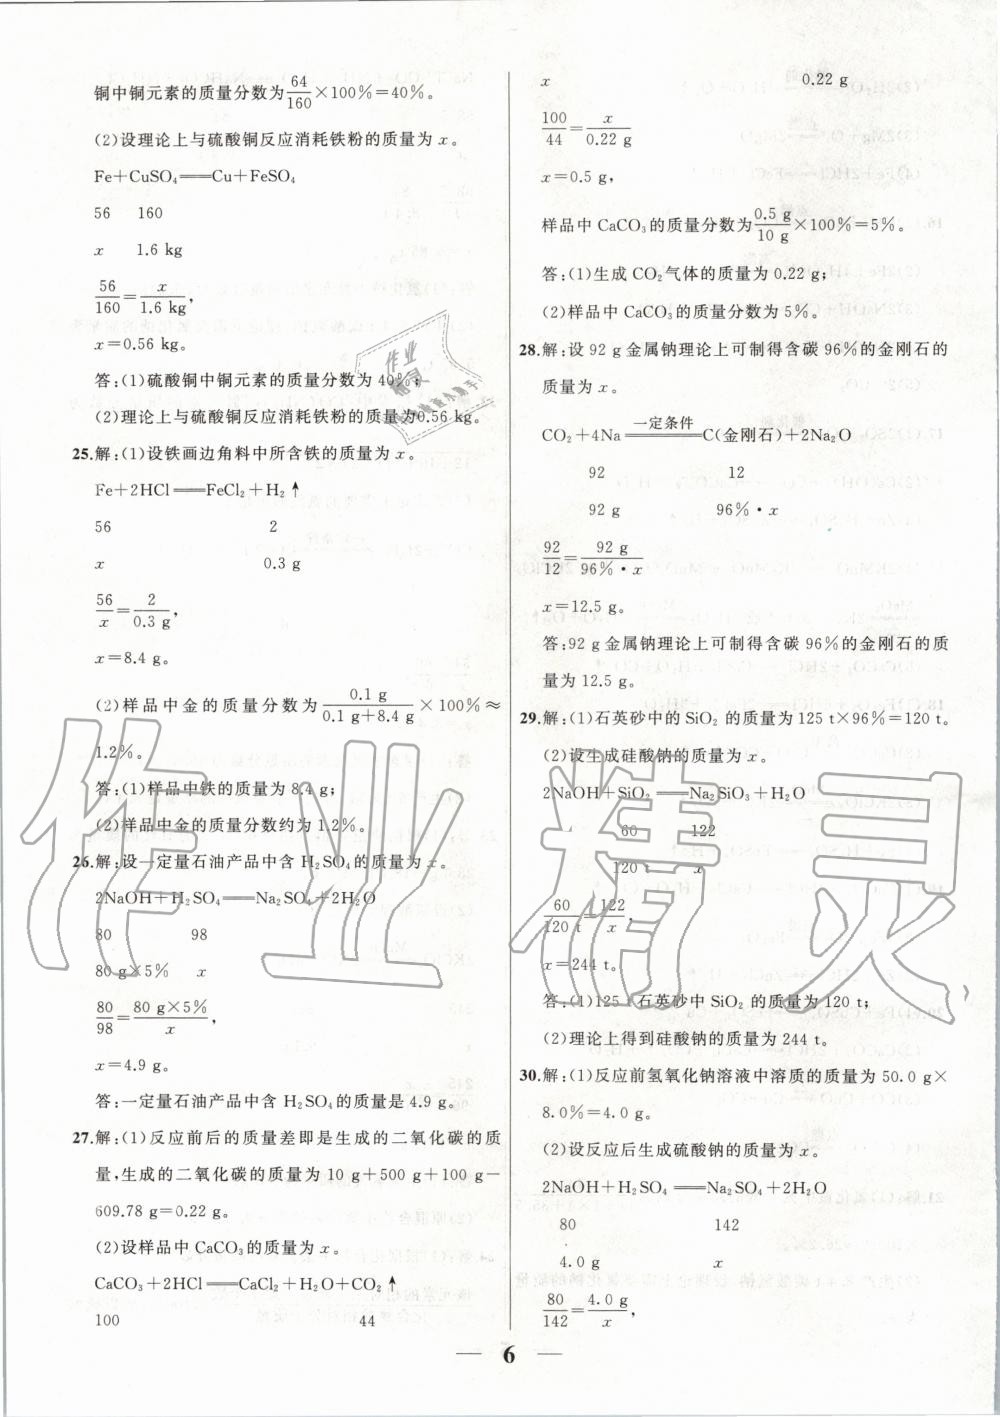 铜中铜元素的质量分数为64/160×100%=40%。
(2)设理论上与硫酸铜反应消耗铁粉的质量为x。
Fe+CuSO₄══Cu+FeSO₄
56 160
x 1.6 kg
56/160=x/1.6 kg,
x=0.56 kg。
答:(1)硫酸铜中铜元素的质量分数为40%;
(2)理论上与硫酸铜反应消耗铁粉的质量为0.56 kg。
25.解:(1)设铁画边角料中所含铁的质量为x。
Fe+2HCl══FeCl₂+H₂↑
56 2
x 0.3 g
56/x=2/0.3 g,
x=8.4 g。
(2)样品中金的质量分数为0.1 g/(0.1 g+8.4 g)×100%≈
1.2%。
答:(1)样品中铁的质量为8.4 g;
(2)样品中金的质量分数约为1.2%。
26.解:设一定量石油产品中含H₂SO₄的质量为x。
2NaOH+H₂SO₄══Na₂SO₄+2H₂O
80 98
80 g×5% x
80/98=80 g×5%/x,
x=4.9 g。
答:一定量石油产品中含H₂SO₄的质量是4.9 g。
27.解:(1)反应前后的质量差即是生成的二氧化碳的质
量,生成的二氧化碳的质量为10 g+500 g+100 g-
609.78 g=0.22 g。
(2)设样品中CaCO₃的质量为x。
CaCO₃+2HCl══CaCl₂+H₂O+CO₂↑
100 44
x 0.22 g
100/44=x/0.22 g
x=0.5 g,
样品中CaCO₃的质量分数为0.5 g/10 g×100%=5%。
答:(1)生成CO₂气体的质量为0.22 g;
(2)样品中CaCO₃的质量分数为5%。
28.解:设92 g金属钠理论上可制得含碳96%的金刚石的
质量为x。
CO₂+4Na══(一定条件)C(金刚石)+2Na₂O
92 12
92 g 96%·x
92/12=92 g/(96%·x)
x=12.5 g。
答:92 g金属钠理论上可制得含碳96%的金刚石的质
量为12.5 g。
29.解:(1)石英砂中的SiO₂的质量为125 t×96%=120 t。
(2)设生成硅酸钠的质量为x。
2NaOH+SiO₂══Na₂SiO₃+H₂O
60 122
120 t x
60/120 t=122/x,
x=244 t。
答:(1)125 t石英砂中SiO₂的质量为120 t;
(2)理论上得到硅酸钠的质量为244 t。
30.解:(1)反应前氢氧化钠溶液中溶质的质量为50.0 g×
8.0%=4.0 g。
(2)设反应后生成硫酸钠的质量为x。
2NaOH+H₂SO₄══Na₂SO₄+2H₂O
80 142
4.0 g x
80/142=4.0 g/x,
6
作业精灵